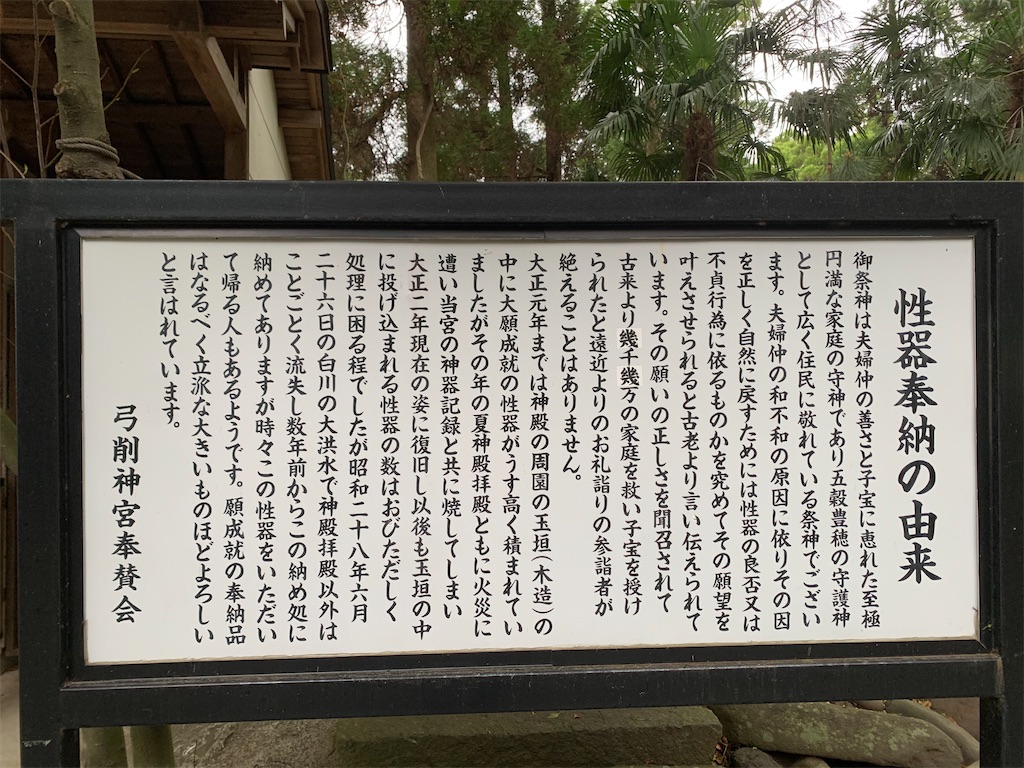 性器奉納の由来
御祭神は夫婦仲の善さと子宝に恵れた至極
円満な家庭の守神であり五穀豊穂の守護神
として広く住民に敬れている祭神でござい
ます。夫婦仲の和不和の原因に依りその因
を正しく自然に戻すためには性器の良否又は
不貞行為に依るものかを究めてその願望を
叶えさせられると古老より言い伝えられて
います。その願いの正しさを聞召されて
古来より幾千幾万の家庭を救い子宝を授け
られたと遠近よりのお礼詣りの参詣者が
絶えることはありません。
大正元年までは神殿の周園の玉垣(木造)の
中に大願成就の性器がうす高く積まれてい
ましたがその年の夏神殿拝殿ともに火災に
遭い当宮の神器記録と共に焼してしまい
大正二年現在の姿に復旧し以後も玉垣の中
に投げ込まれる性器の数はおびただしく
処理に困る程でしたが昭和二十八年六月
二十六日の白川の大洪水で神殿拝殿以外は
ことごとく流失し数年前からこの納め処に
納めてありますが時々この性器をいただい
て帰る人もあるようです。願成就の奉納品
はなるべく立派な大きいものほどよろしい
と言はれています。
弓削神宮奉賛会